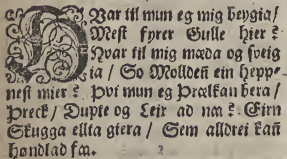 HVar til mun eg mig beygia/
Mest fyrer Gulle hier?
Hvar til mig mæda og sveig
ia/ So Mollden ein hepp-
nest mier? Þvi mun eg Þrælkan bera/
Þreck/ Dupte og Leir ad næ? Eirn
Skugga ellta giera/ Sem alldrei kañ
høndlad fæ.